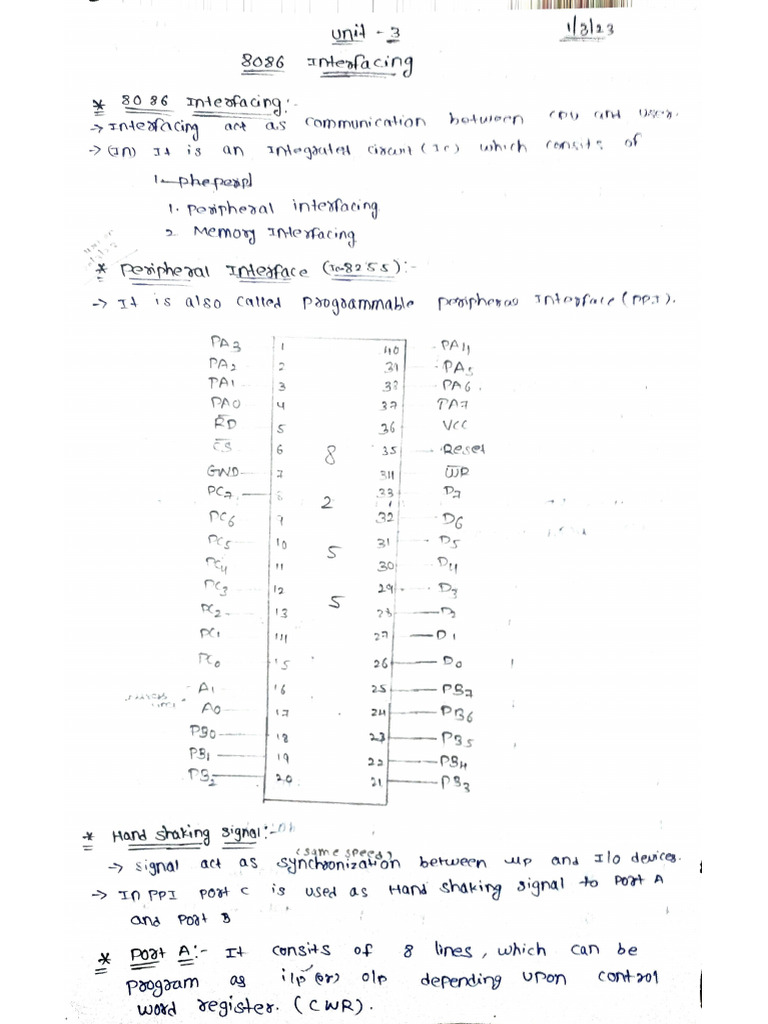 Unit - 3
1/3/23
8086 Interfacing
* 8086 Interfacing:-
→ Interfacing act as communication between CPU and user.
→ (In) It is an Integrated circuit (IC) which consits of
1. pheperpl
1. Peripheral interfacing
2. Memory Interfacing
* Peripheral Interface (Ic-8255):-
→ It is also called programmable peripheral Interface (PPI).
PA3 1 40 PA4
PA2 2 39 PA5
PA1 3 38 PA6
PA0 4 37 PA7
R̅D̅ 5 36 Vcc
C̅S̅ 6 8 35 Reset
GND 7 34 W̅R̅
PC7 8 2 33 D7
PC6 9 32 D6
PC5 10 5 31 D5
PC4 11 30 D4
PC3 12 5 29 D3
PC2 13 28 D2
PC1 14 27 D1
PC0 15 26 D0
A1 16 25 PB7
A0 17 24 PB6
PB0 18 23 PB5
PB1 19 22 PB4
PB2 20 21 PB3
* Hand shaking signal:-
(same speed)
→ signal act as synchronization between up and I/o devices.
→ In PPI port C is used as Hand shaking signal to port A
and port B
* Port A:- It consits of 8 lines, which can be
program as i/p (or) o/p depending upon control
word register. (CWR).